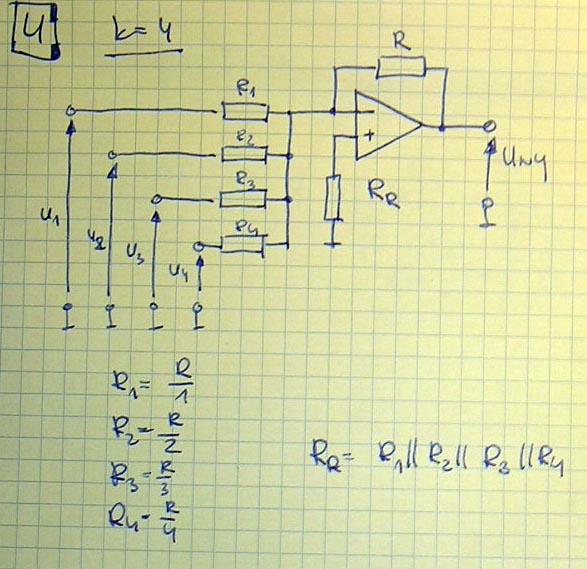 4 k=4
R
R1
R2
R3
R4
+
RR
U1
U2
U3
U4
UWY
R1= R/1
R2= R/2
R3= R/3
R4= R/4
RR= R1 || R2 || R3 || R4